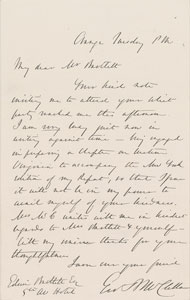 Orange Tuesday P.M.
My dear Mr Bartlett
Your kind note
inviting me to attend your whist
party reached me this afternoon.
I am very busy just now in
writing against time — being engaged
in preparing a chapter on Western
Virginia to accompany the New York
edition of my Report, so that I fear
it will not be in my power to
avail myself of your kindness.
Mrs McC unites with me in kindest
regards to Mrs Bartlett & yourself —
with my sincere thanks for your
thoughtfulness
I am ever your friend
Geo B McClellan
Edwin Bartlett Esq
5th Av Hotel